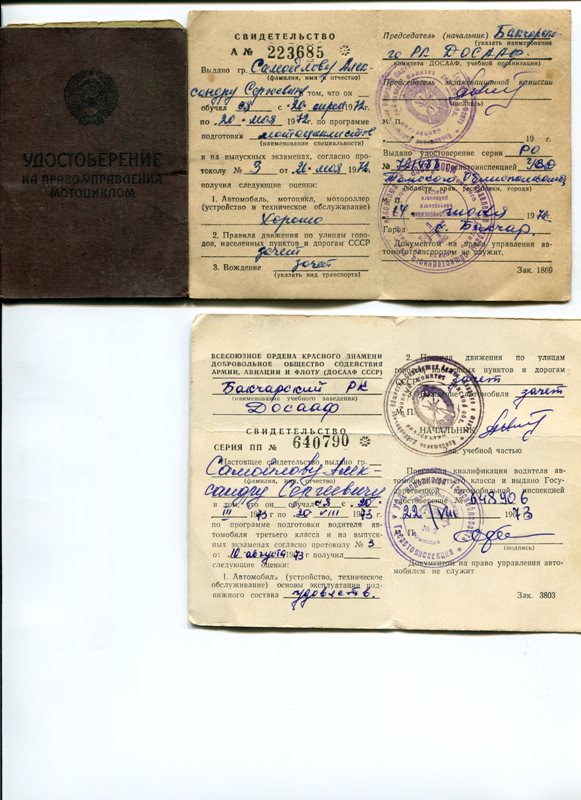 УДОСТОВЕРЕНИЕ
НА ПРАВО УПРАВЛЕНИЯ
МОТОЦИКЛОМ
СВИДЕТЕЛЬСТВО
А № 223685
Выдано гр. Самойлову Алек-
(фамилия, имя и отчество)
сандру Сергеевичу в том, что он
обучался с 20 апреля 1972 г.
по 20 мая 1972 г. по программе
подготовки мотоциклистов
(наименование специальности)
и на выпускных экзаменах, согласно про-
токолу № 3 от 20 мая 1972 г.
получил следующие оценки:
1. Автомобиль, мотоцикл, мотороллер
(устройство и техническое обслуживание)
Хорошо
2. Правила движения по улицам горо-
дов, населенных пунктов и дорогам СССР
зачет
3. Вождение зачет
(указать вид транспорта)
Председатель (начальник) Бакчарско-
(указать наименование
го РК ДОСААФ
комитета ДОСААФ, учебной организации)
Председатель экзаменационной комиссии
(подпись)
М. П.
19 г.
Выдано удостоверение серии РО
№ автоинспекцией УВД
Томского облисполкома
(области, края, республики, города)
14 июля 1972 г.
Город с. Бакчар.
Документом на право управления
автомототранспортом не служит.
Зак. 1869
ВСЕСОЮЗНОЕ ОРДЕНА КРАСНОГО ЗНАМЕНИ
ДОБРОВОЛЬНОЕ ОБЩЕСТВО СОДЕЙСТВИЯ
АРМИИ, АВИАЦИИ И ФЛОТУ (ДОСААФ СССР)
Бакчарский РК
(наименование учебного заведения)
Досааф
СВИДЕТЕЛЬСТВО
СЕРИЯ ПП № 640790
Настоящее свидетельство выдано гр.
Самойлову Алек-
сандру Сергеевичу
(фамилия, имя, отчество)
в том, что он обучался с 20
III 1973 г. по 20 VIII 1973 г.
по программе подготовки водителя
автомобиля третьего класса и на выпуск-
ных экзаменах согласно протоколу № 3
от 10 августа 1973 г. получил
следующие оценки:
1. Автомобиль (устройство, техническое
обслуживание) основы эксплуатации под-
вижного состава удовлетв.
2. Правила движения по улицам
городов, населенных пунктов и дорогам
зачет
3. Вождение автомобиля зачет
М. П.
НАЧАЛЬНИК
учебной частью
Присвоена квалификация водителя авто-
мобиля класса и выдано Госу-
дарственной автомобильной инспекцией
удостоверение № 648906
22 VIII 1973
(подпись)
Документом на право управления авто-
мобилем не служит
Зак. 3803